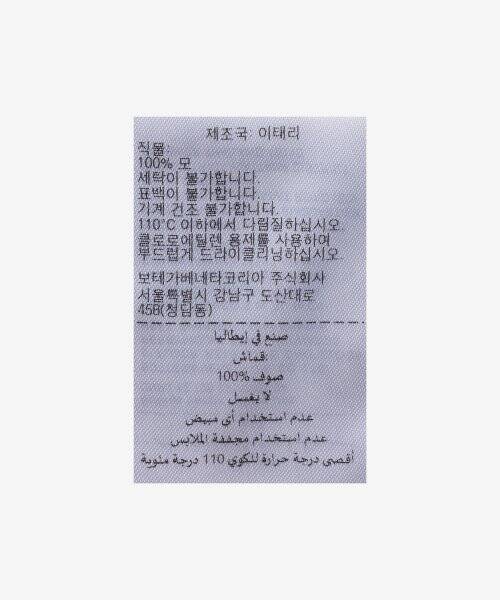 제조국: 이태리
직물:
100% 모
세탁이 불가합니다.
표백이 불가합니다.
기계 건조 불가합니다.
110°C 이하에서 다림질하십시오.
클로로에틸렌 용제를 사용하여
부드럽게 드라이클리닝하십시오.
보테가베네타코리아 주식회사
서울특별시 강남구 도산대로
458(청담동)
صنع في إيطاليا
قماش:
صوف %100
لا يغسل
عدم استخدام أي مبيض
عدم استخدام مجففة الملابس
أقصى درجة حرارة للكوي 110 درجة مئوية